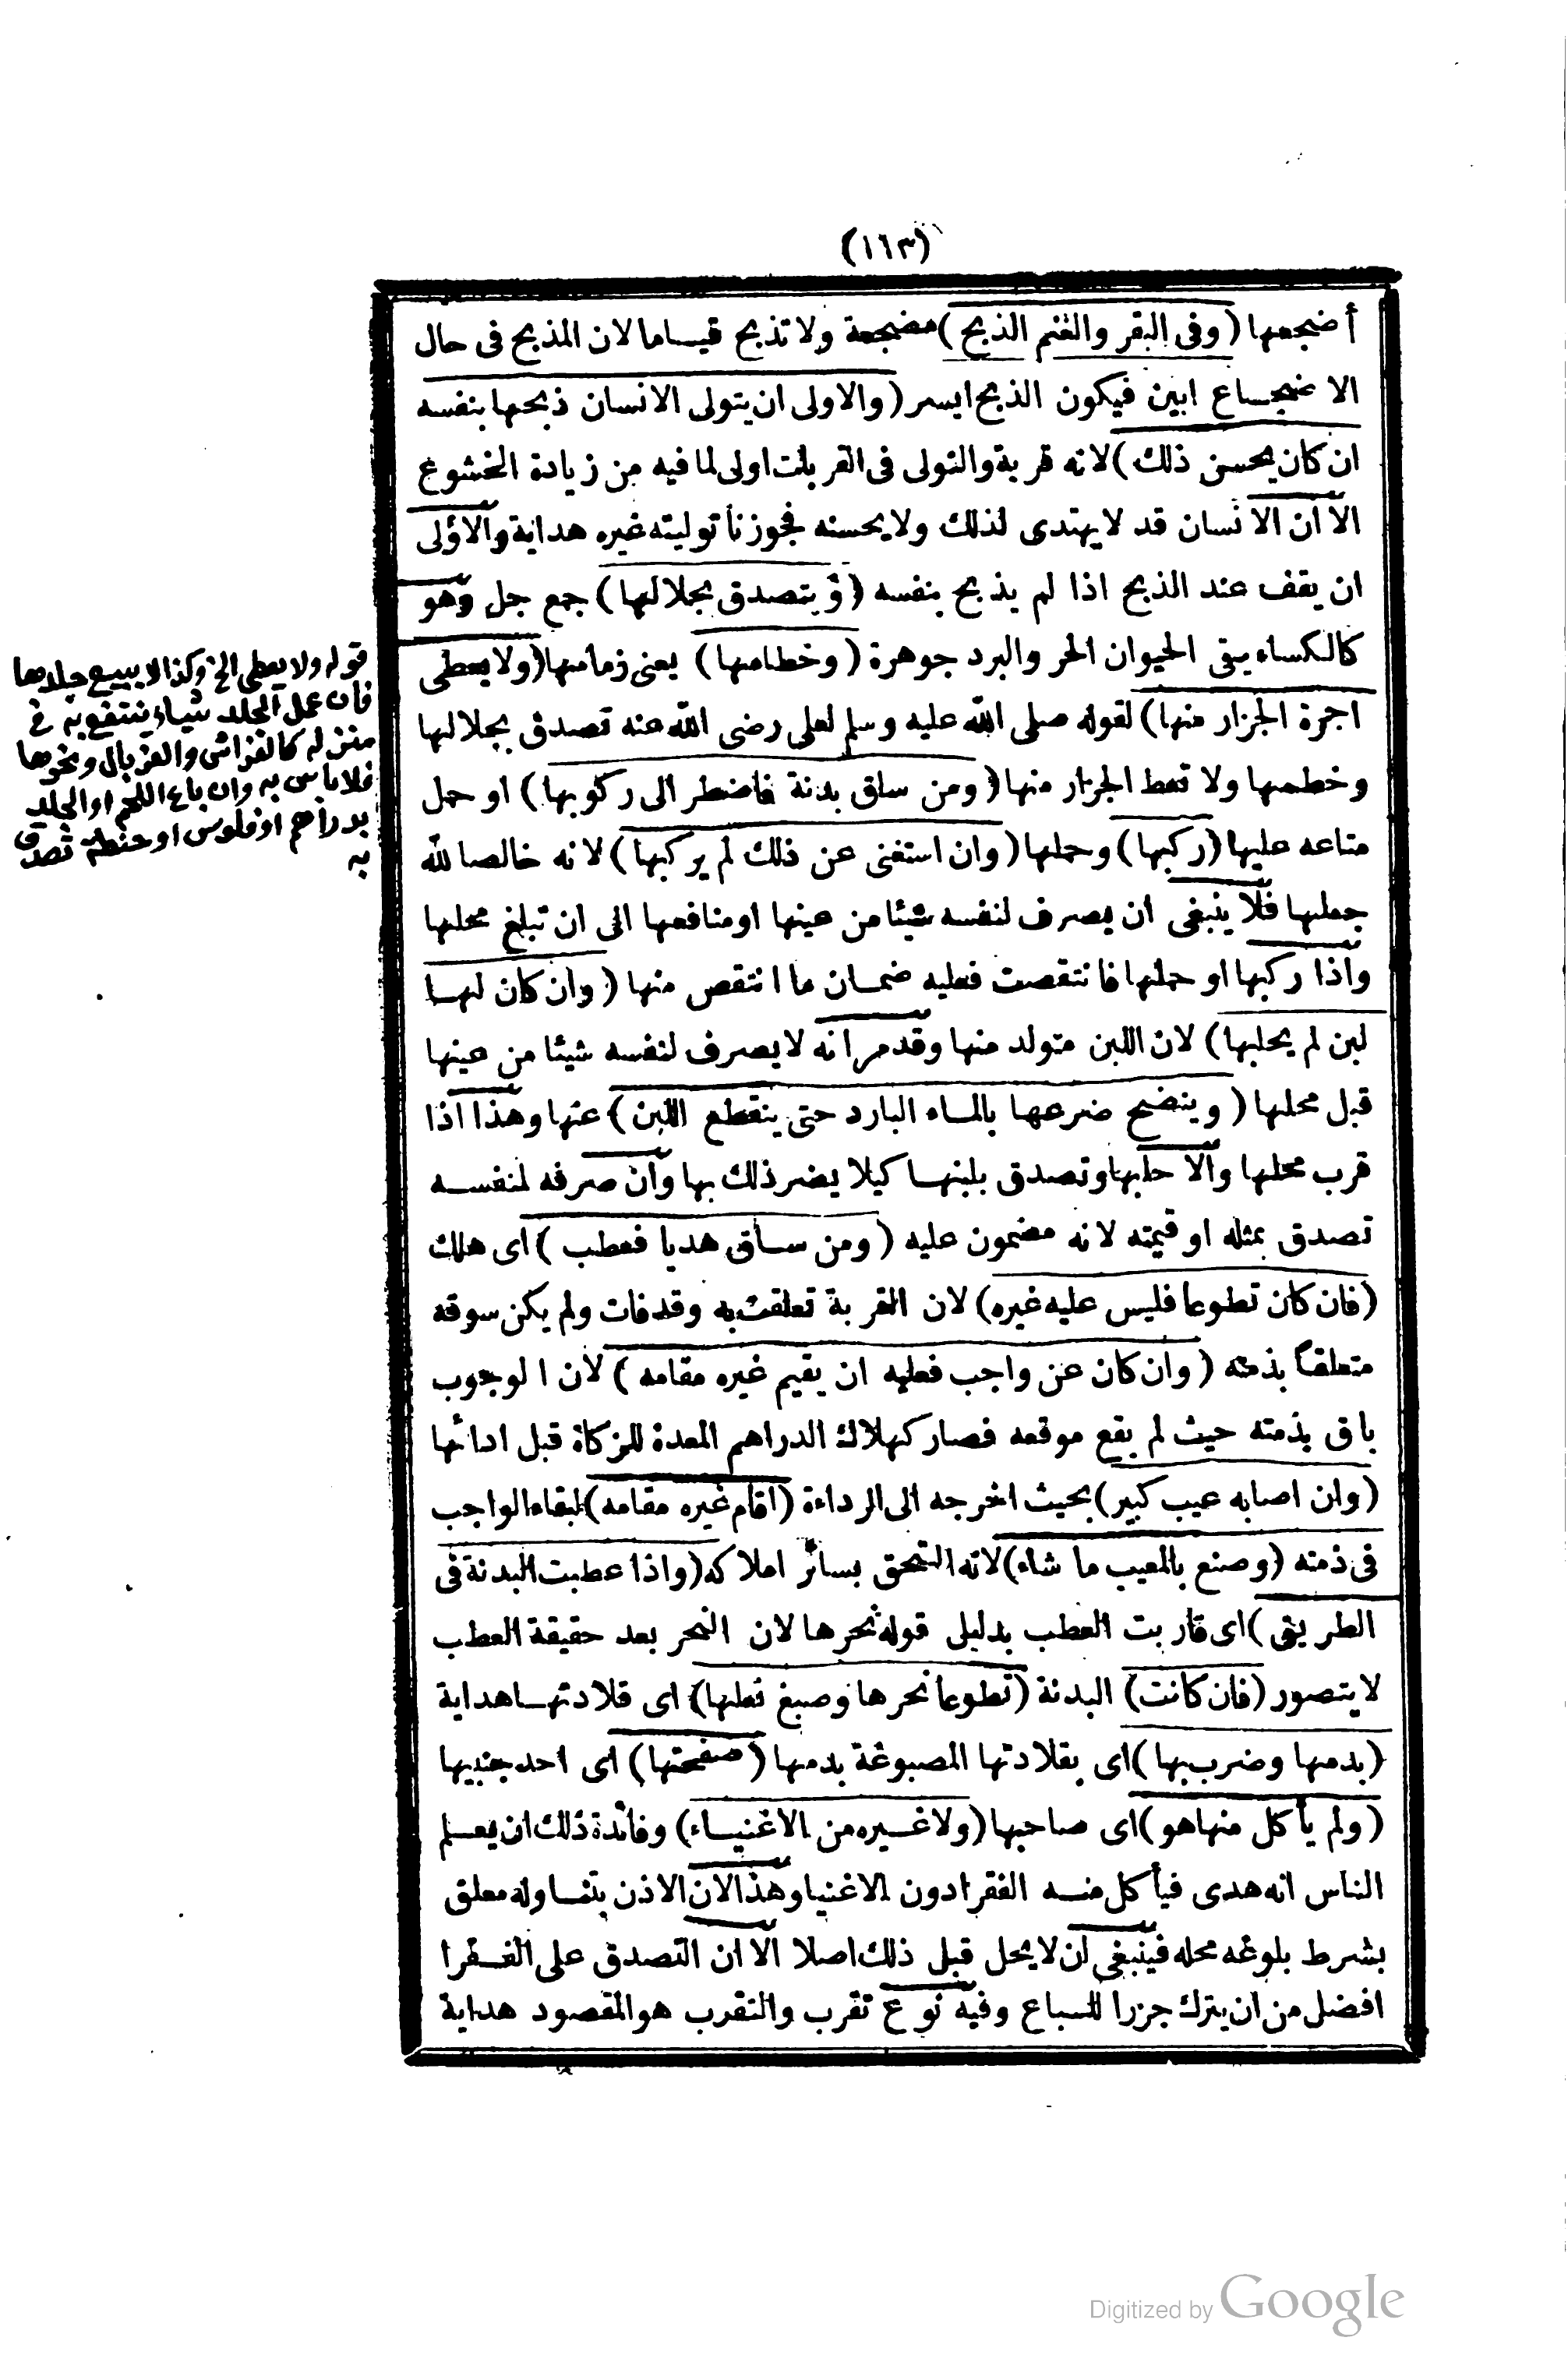 (١٦٣)
أضجعها (وفى البقر والغنم الذبح) مضجعة ولا تذبح قياما لان المذبح فى حال
الاضجاع ابين فيكون الذبح ايسر (والاولى ان يتولى الانسان ذبحها بنفسه
ان كان يحسن ذلك) لانه قربة والتولى فى القربات اولى لما فيه من زيادة الخشوع
الا ان الانسان قد لا يهتدى لذلك ولا يحسنه فجوزنا توليته غيره هداية والاولى
ان يقف عند الذبح اذا لم يذبح بنفسه (ويتصدق بجلالها) جمع جل وهو
كالكساء يقى الحيوان الحر والبرد جوهرة (وخطامها) يعنى زمامها (ولا يعطى
اجرة الجزار منها) لقوله صلى الله عليه وسلم لعلى رضى الله عنه تصدق بجلالها
وخطمها ولا تعط الجزار منها (ومن ساق بدنة فاضطر الى ركوبها) او حمل
متاعه عليها (ركبها) وحملها (وان استغنى عن ذلك لم يركبها) لانه خالصا لله
جعلها فلا ينبغى ان يصرف لنفسه شيئا من عينها او منافعها الى ان تبلغ محلها
واذا ركبها او حملها فانتقصت فعليه ضمان ما انتقص منها (وان كان لها
لبن لم يحلبها) لان اللبن متولد منها وقد مر انه لا يصرف لنفسه شيئا من عينها
قبل محلها (وينضح ضرعها بالماء البارد حتى ينقطع اللبن) عنها وهذا اذا
قرب محلها والا حلبها وتصدق بلبنها كيلا يضر ذلك بها وان صرفه لنفسه
تصدق بمثله او قيمته لانه مضمون عليه (ومن ساق هديا فعطب) اى هلك
(فان كان تطوعا فليس عليه غيره) لان القربة تعلقت به وقد فات ولم يكن سوقه
متعلقا بذمته (وان كان عن واجب فعليه ان يقيم غيره مقامه) لان الوجوب
باق بذمته حيث لم يقع موقعه فصار كهلاك الدراهم المعدة للزكاة قبل ادائها
(وان اصابه عيب كبير) بحيث اخرجه الى الرداءة (اقام غيره مقامه) لبقاء الواجب
فى ذمته (وصنع بالمعيب ما شاء) لانه التحق بسائر املاكه (واذا عطبت البدنة فى
الطريق) اى قاربت العطب بدليل قوله نحرها لان النحر بعد حقيقة العطب
لا يتصور (فان كانت) البدنة (تطوعا نحرها وصبغ نعلها) اى قلادتها هداية
(بدمها وضرب بها) اى بقلادتها المصبوغة بدمها (صفحتها) اى احد جنبيها
(ولم يأكل منها هو) اى صاحبها (ولا غيره من الاغنياء) وفائدة ذلك ان يعلم
الناس انه هدى فيأكل منه الفقرا دون الاغنيا وهذا لان الاذن بتناوله معلق
بشرط بلوغه محله فينبغى ان لا يحل قبل ذلك اصلا الا ان التصدق على الفقرا
افضل من ان يترك جزرا للسباع وفيه نوع تقرب والتقرب هو المقصود هداية
قوله ولا يعطى الخ وكذا لا يبيع جلدها
فان عمل الجلد شياء ينتفع به فى
منزله كالفراش والغربال ونحوها
فلا باس به وان باع اللحم او الجلد
بدراهم او فلوس او حنطة تصدق
به
Digitized by Google